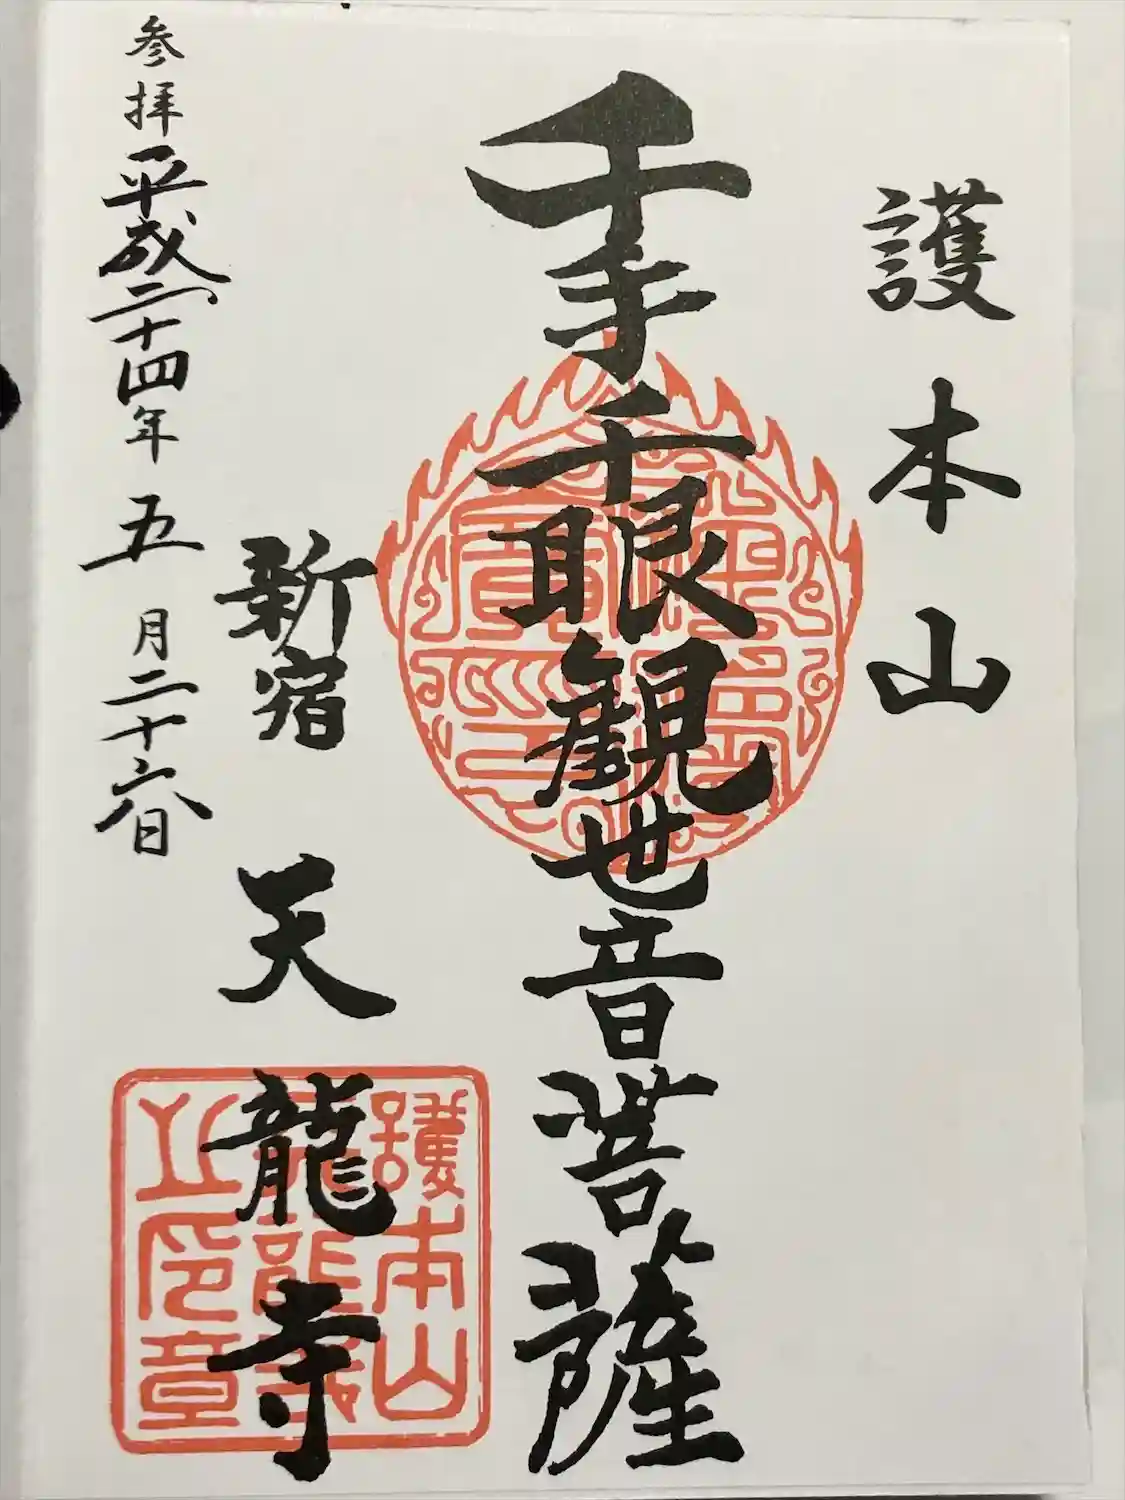 護本山
千手千眼観世音菩薩
新宿 天龍寺
参拝 平成二十四年 五 月二十六日
護本山
天龍寺
之印章